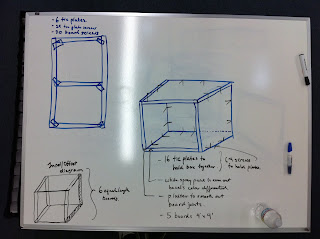 - 6 tie plates
- 20 board screws
Incell/Offset
diagram
6 equal length
- 16 tie plates to
hold box together
to hold plates
- white spray paint to even out
board's color differential
- plaster to smooth out
board joints
- 5 boards 4'x4'